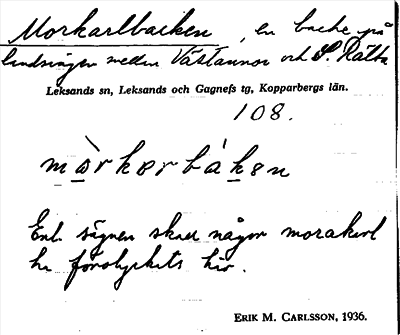 Morkarlbacken, en backe på
landsvägen mellan Västannor och S. Rälta
Leksands sn, Leksands och Gagnefs tg, Kopparbergs län.
108.
mòrkərbákən
Enl. sägnen skall någon morakarl
ha förolyckats här.
ERIK M. CARLSSON, 1936.